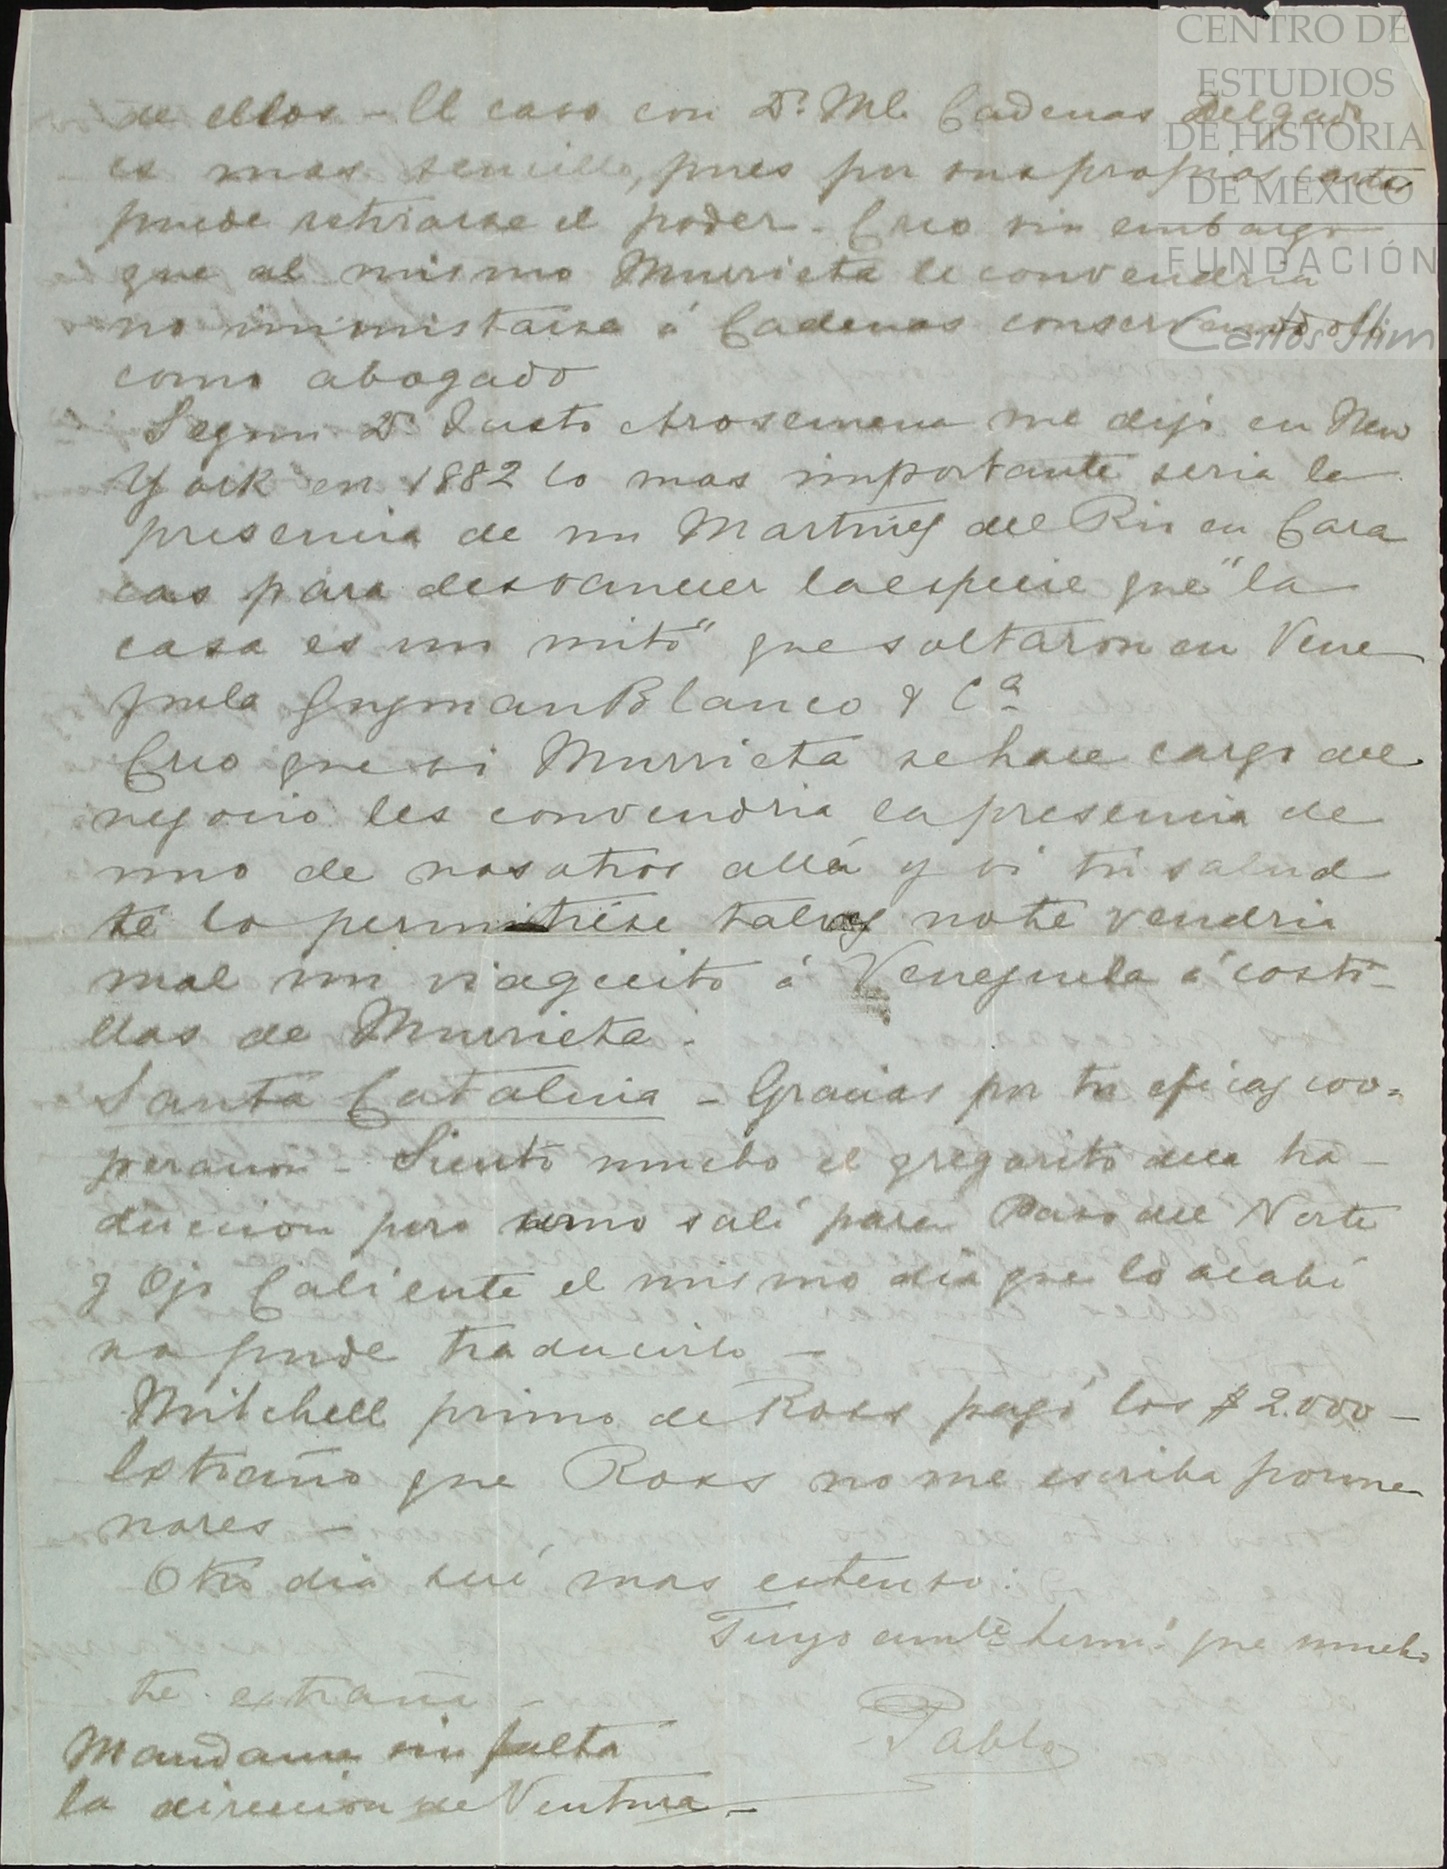 CENTRO DE
ESTUDIOS
DE HISTORIA
DE MÉXICO
FUNDACIÓN
Carlos Slim
de ellos - El caso con Dn. Ml. Cadenas Delgado
es mas sencillo, pues por sus propias cartas
puede retirarse el poder. Creo sin embargo
que al mismo Murrieta le convendria
no inimistarse á Cadenas conservandolo
como abogado
Segun Dn. Justo Arosemena me dijo en New
York en 1882 lo mas importante seria la
presencia de un Martinez del Rio en Cara
cas para desvanecer la especie que "la
casa es un mito" que soltaron en Vene
zuela Guzman Blanco & Ca
Creo que si Murrieta se hace cargo del
negocio les convendria la presencia de
uno de nosotros allá y si tu salud
te lo permitiese talvez no te vendria
mal un viagecito á Venezuela á costi-
llas de Murrieta.
Santa Catalina - Gracias por tu eficaz coo-
peracion - Siento mucho el gregorito de la tra-
duccion pero como salí para Paso del Norte
y Ojo Caliente el mismo dia que lo acabé
no pude traducirlo -
Mitchell primo de Ross pagó los $2.000 -
Extraño que Ross no me escriba porme
nores -
Otro dia seré mas estenso.
Tuyo amte. herm.o que mucho
te extraña -
Pablo
Mandame sin falta
la direccion de Ventura -